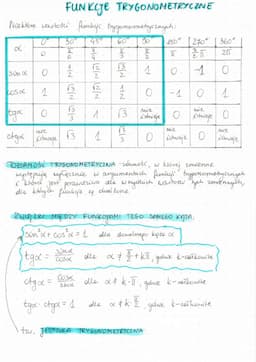 FUNKCJE TRYGONOMETRYCZNE
Niektóre wartości funkcji trygonometrycznych:
α 0° 30° 45° 60° 90° 180° 270° 360°
0 π/6 π/4 π/3 π/2 π 3/2 π 2π
sin α 0 1/2 √2/2 √3/2 1 0 -1 0
cos α 1 √3/2 √2/2 1/2 0 -1 0 1
tg α 0 √3/3 1 √3 nie istnieje 0 nie istnieje 0
ctg α nie istnieje √3 1 √3/3 0 nie istnieje 0 nie istnieje
TOŻSAMOŚĆ TRYGONOMETRYCZNA - równość, w której zmienne
występują wyłącznie w argumentach funkcji trygonometrycznych
i która jest prawdziwa dla wszystkich wartości tych zmiennych,
dla których funkcje są określone.
ZWIĄZKI MIĘDZY FUNKCJAMI TEGO SAMEGO KĄTA:
sin²α + cos²α = 1 dla dowolnego kąta α
tg α = sin α / cos α dla α ≠ π/2 + kπ, gdzie k - całkowite
ctg α = cos α / sin α dla α ≠ k·π, gdzie k - całkowite
tg α · ctg α = 1 dla α ≠ k·π/2, gdzie k - całkowite
tzw. JEDYNKA TRYGONOMETRYCZNA